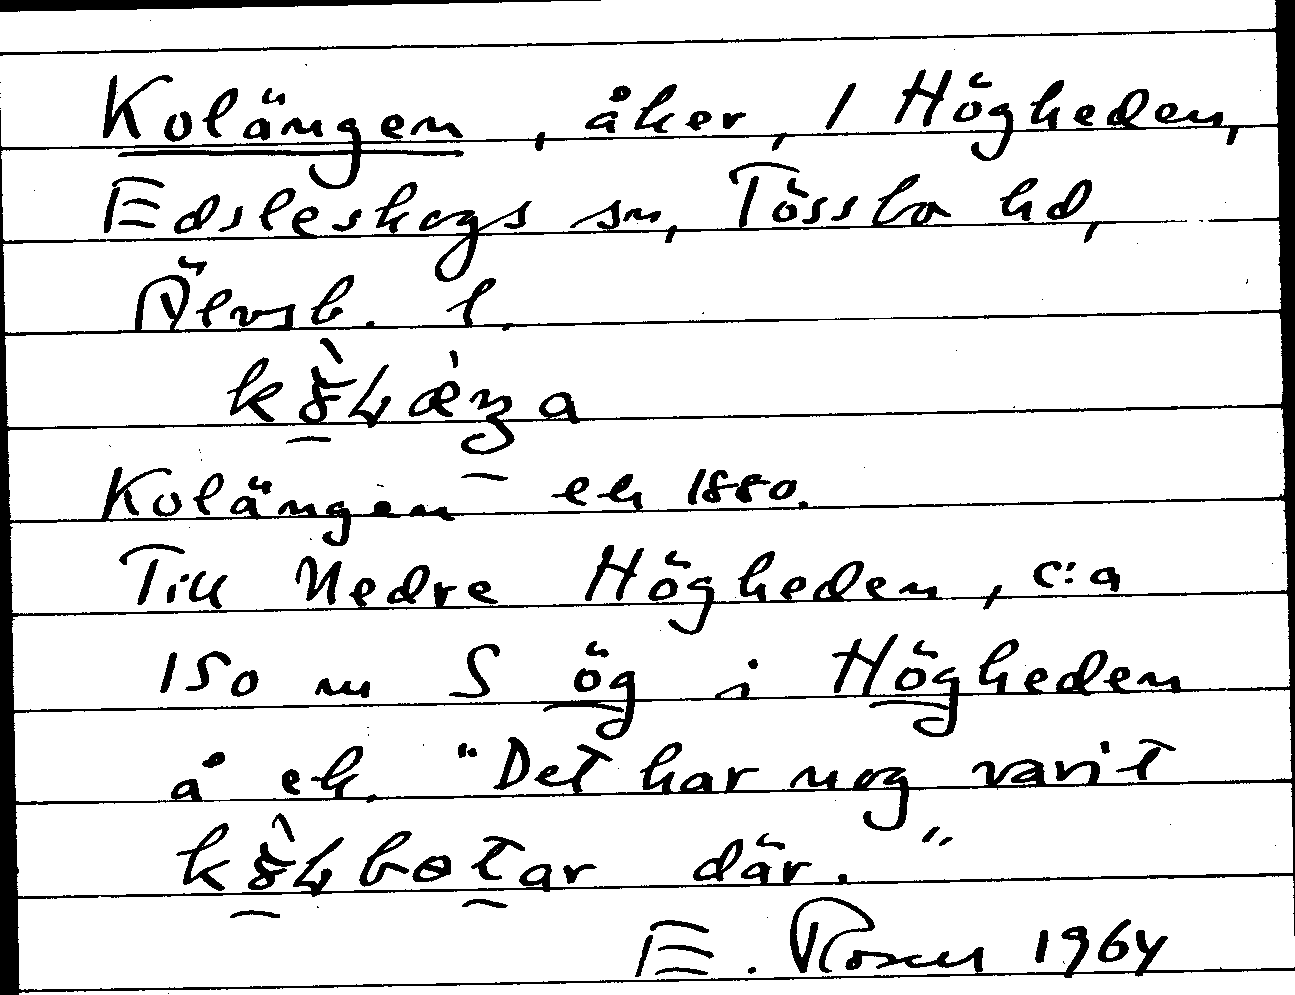 Kolängen, åker, 1 Högheden,
Edsleskogs sn, Tössbo hd,
Älvsb. l.
Kolängen ek 1880.
Till Nedre Högheden, c:a
150 m S ög i Högheden
å ek. "Det har nog varit
där."
E. Rosell 1964